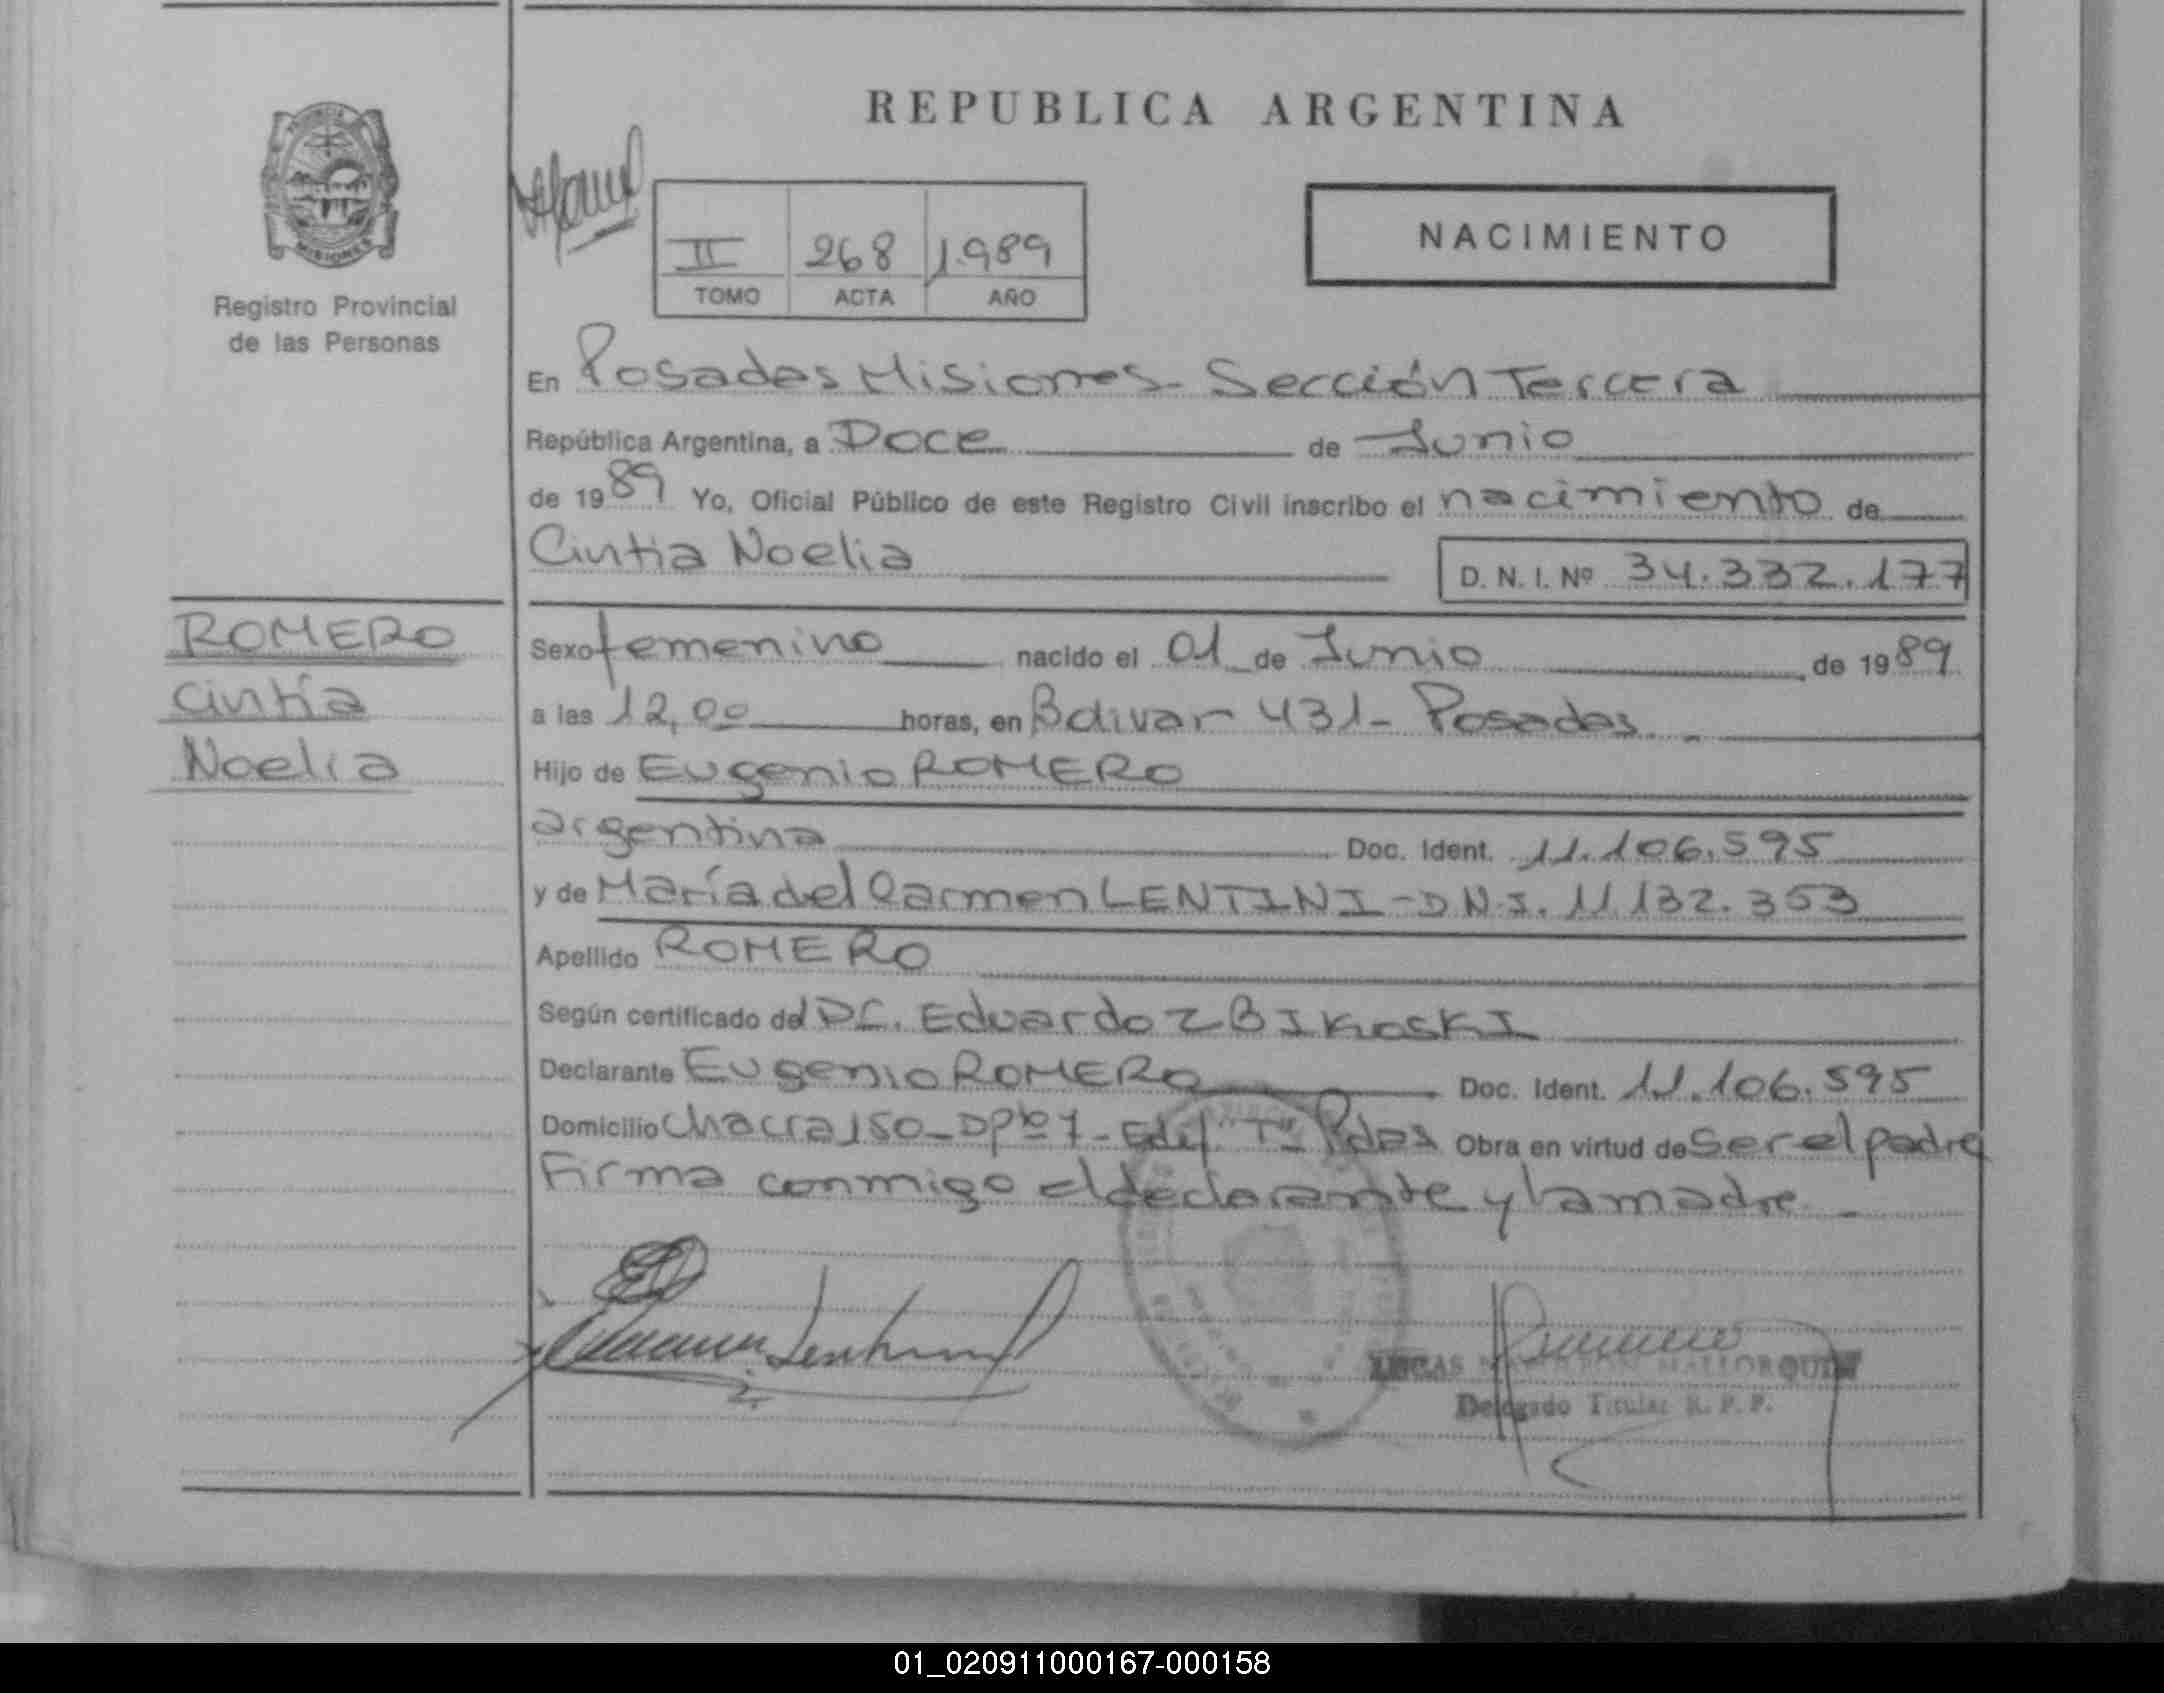 REPUBLICA ARGENTINA
PROVINCIA
MISIONES
Registro Provincial
de las Personas
II 268 1.989
TOMO ACTA AÑO
NACIMIENTO
En Posadas Misiones - Sección Tercera
República Argentina, a Doce de Junio
de 1989 Yo, Oficial Público de este Registro Civil inscribo el nacimiento de
Cintia Noelia D. N. I. Nº 34.332.177
ROMERO
Cintia
Noelia
Sexo femenino nacido el 01 de Junio de 1989
a las 12,00 horas, en Bolivar 431 - Posadas. -
Hijo de Eugenio ROMERO
argentina Doc. Ident. 11.106.595
y de María del Carmen LENTINI - D.N.I. 11.132.353
Apellido ROMERO
Según certificado del Dr. Eduardo ZBIKOSKI
Declarante Eugenio ROMERO Doc. Ident. 11.106.595
Domicilio Chacra 150 - Dpto 1 - Edif "T" - Pdas Obra en virtud de Ser el padre
Firma conmigo el declarante y la madre. -
LUCAS MALLORQUIN
Delegado Titular R. P. P.
01_020911000167-000158